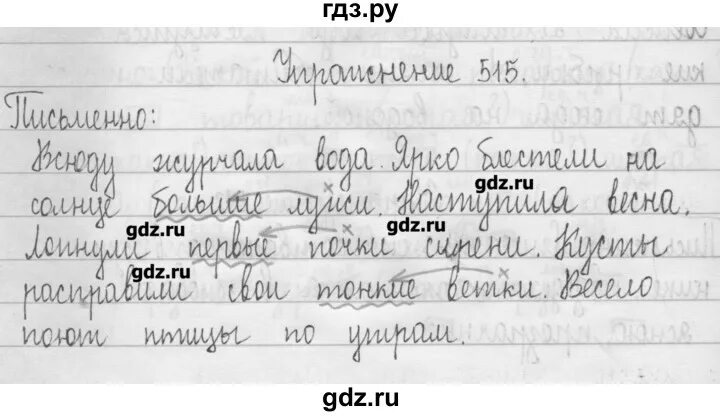 гдз.ру
Упражнение 515.
Письменно:
Всюду журчала вода. Ярко блестели на
gdz.ru
солнце большие лужи. Наступила весна.
gdz.ru
Лопнули первые почки сирени. Кусты
gdz.ru
расправили свои тонкие ветки. Весело
поют птицы по утрам.
gdz.ru